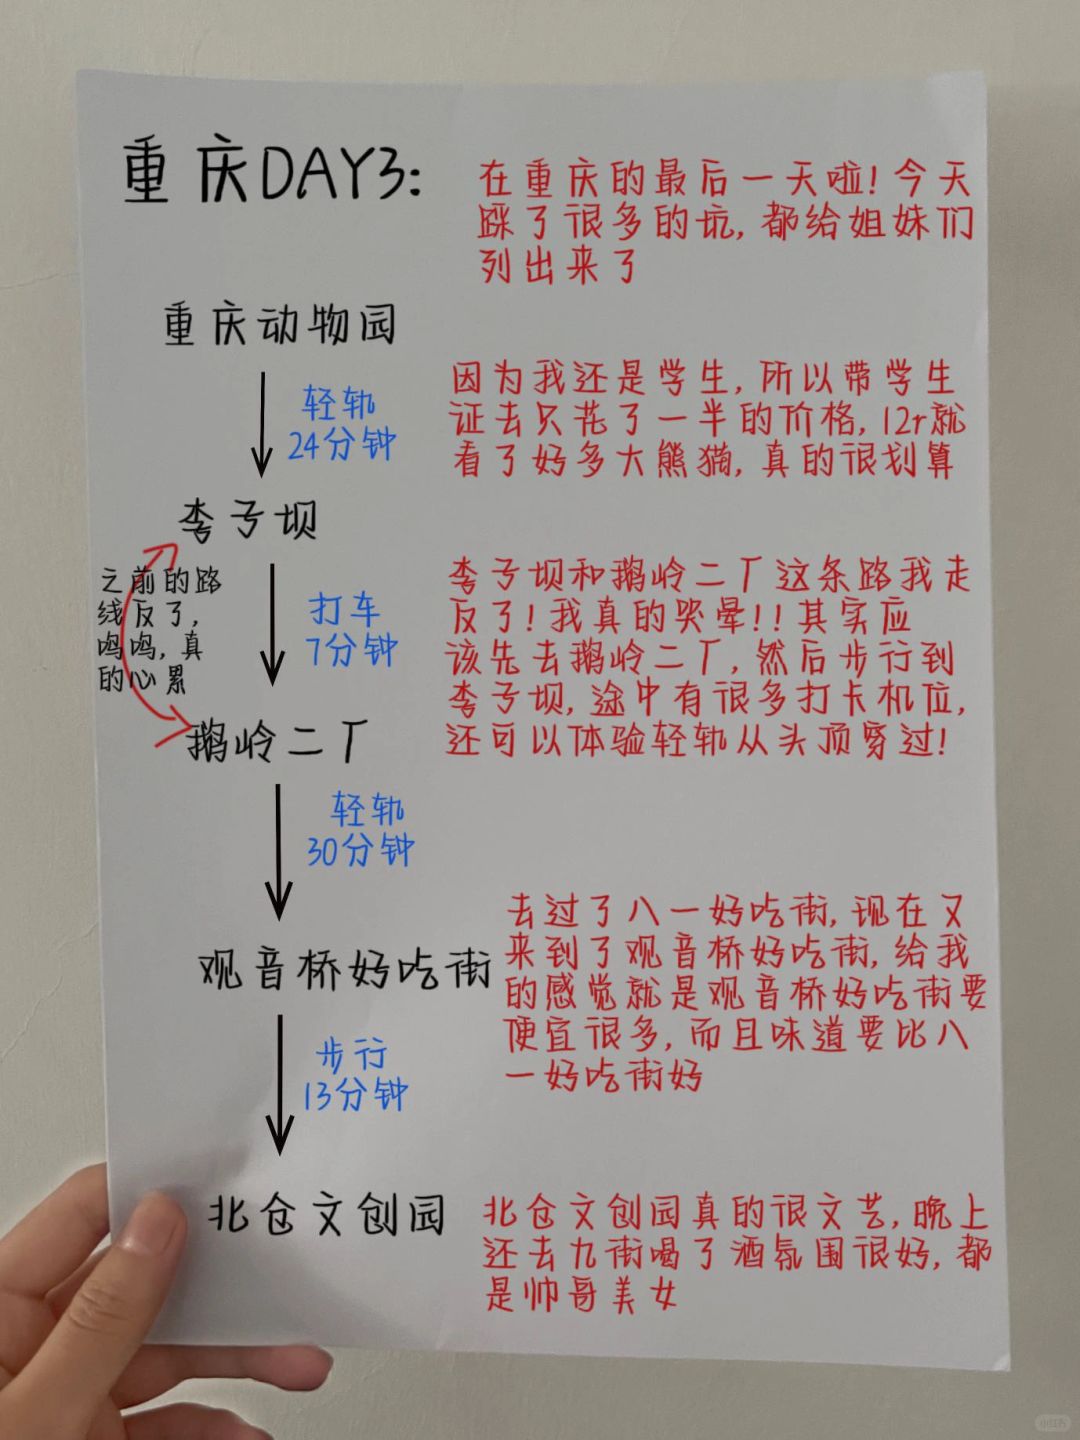 重庆DAY3:
在重庆的最后一天啦!今天
踩了很多的坑,都给姐妹们
列出来了
重庆动物园
轻轨
24分钟
因为我还是学生,所以带学生
证去只花了一半的价格,12r就
看了好多大熊猫,真的很划算
李子坝
之前的路
线反了,
呜呜,真
的心累
打车
7分钟
李子坝和鹅岭二厂这条路我走
反了!我真的哭晕!!其实应
该先去鹅岭二厂,然后步行到
李子坝,途中有很多打卡机位,
还可以体验轻轨从头顶穿过!
鹅岭二厂
轻轨
30分钟
观音桥好吃街
去过了八一好吃街,现在又
来到了观音桥好吃街,给我
的感觉就是观音桥好吃街要
便宜很多,而且味道要比八
一好吃街好
步行
13分钟
北仓文创园
北仓文创园真的很文艺,晚上
还去九街喝了酒氛围很好,都
是帅哥美女
小红书